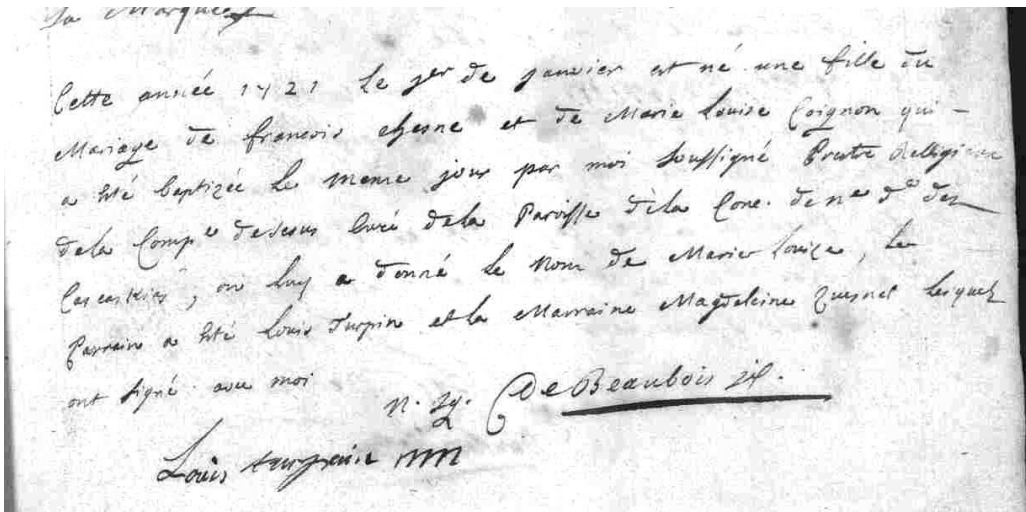 Cette année 1721 le 1er de janvier est né une fille du
Mariage de francois chesne et de Marie Louise Coignon qui -
a été baptizée le meme jour par moi soussigné Pretre Relligieux
de la Compe de Jesus Curé de la Paroisse de la Conc. de ne de des
Cascaskias, on luy a donné le nom de Marie Louize, le
Parrain a été Louis Turpin et la Marraine Magdeleine Quesnel lesquels
ont signé avec moi
N. Ig. De Beaubois
Louis turpin